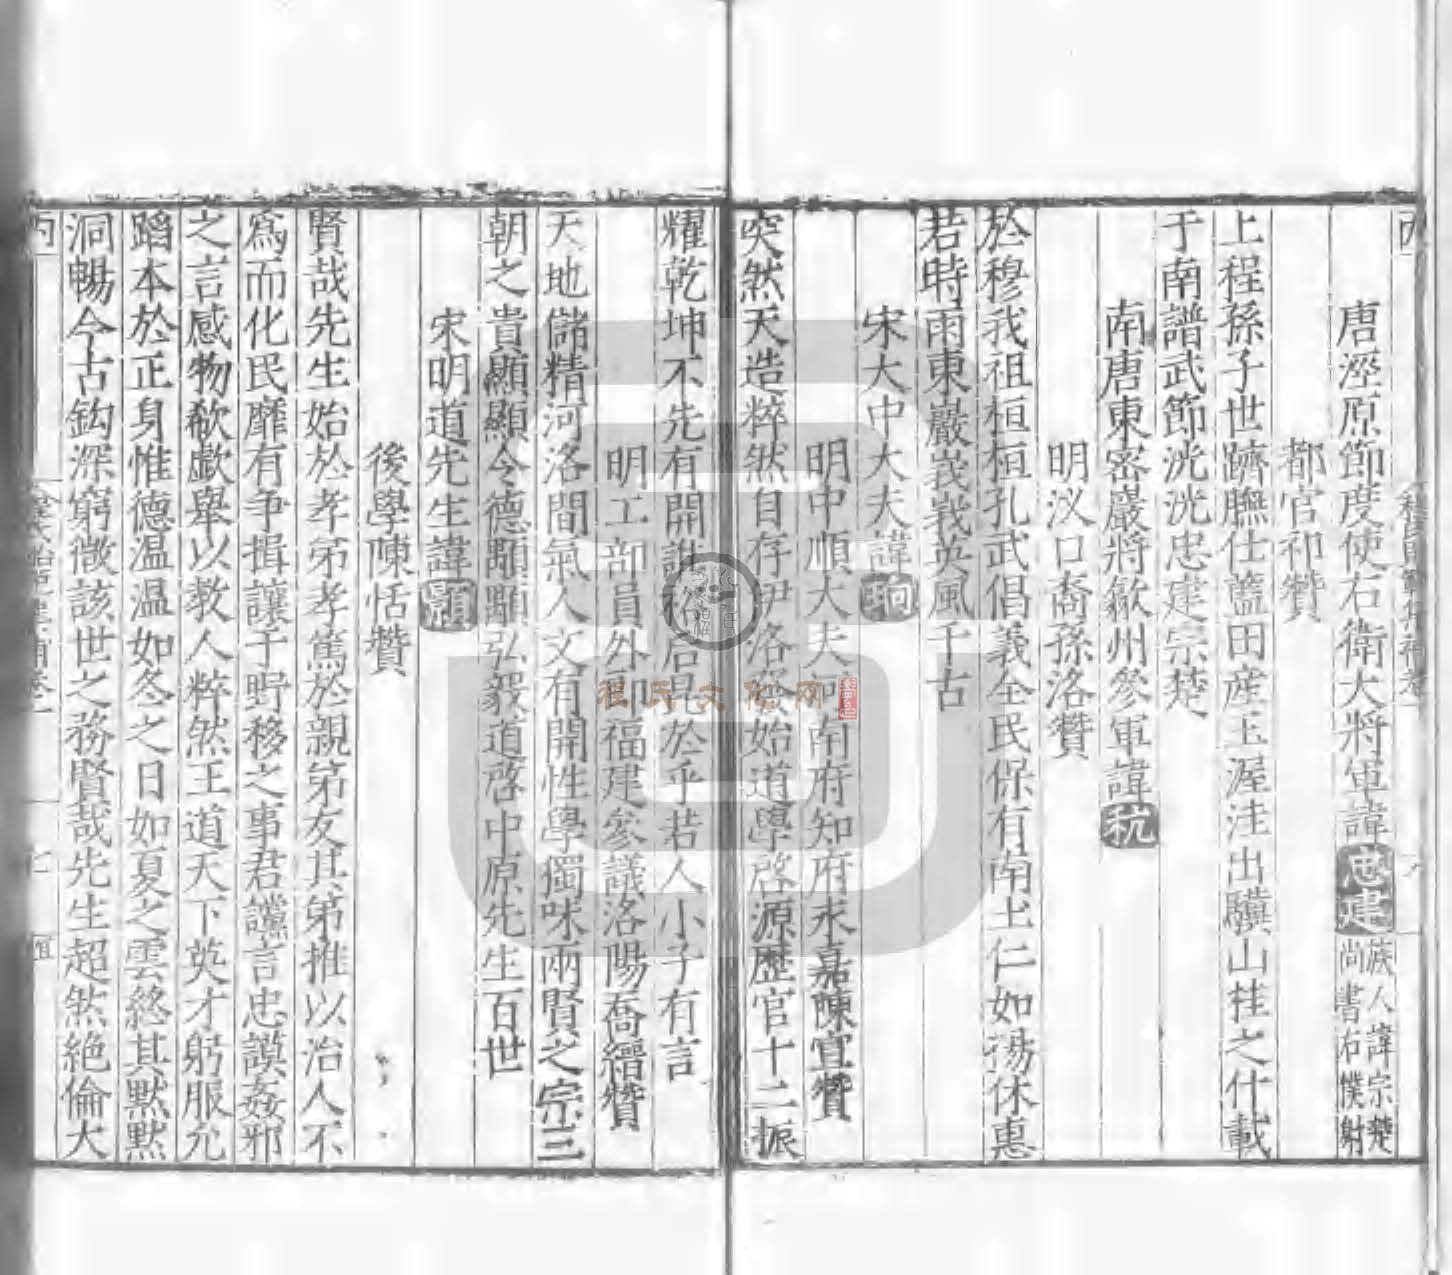 唐涇原節度使右衛大將軍諱忠建族人諱宗楚尚書右僕射
都官祁贊
上程孫子世躋膴仕藍田産玉渥洼出驥山甡之什載
于南譜武節洸洸忠建宗楚
南唐東密巖將歙州參軍諱秔
明汊口裔孫洛贊
於穆我祖桓桓孔武倡義全民保有南土仁如漪休惠
若時雨東巖峩峩英風千古
宋大中大夫諱珦
明中順大夫河南府知府永嘉陳宣贊
突然天造粹然自存伊洛經始道學啓源歷官十二振
耀乾坤不先有開於乎若人小子有言
明工部員外郎福建參議洛陽喬縉贊
天地儲精河洛間氣人文有開性學獨味兩賢之宗三
朝之貴顯顯令德顒顒弘毅道啓中原先生百世
宋明道先生諱顥
後學陳恬贊
賢哉先生始於孝弟孝篤於親弟友其弟推以治人不
爲而化民靡有爭揖讓于野移之事君讜言忠謨姦邪
之言感物欷歔舉以教人粹然王道天下英才躬服允
蹈本於正身惟德温温如冬之日如夏之雲終其默默
洞暢今古鈎深窮徵該世之務賢哉先生超然絶倫大
程氏文化网